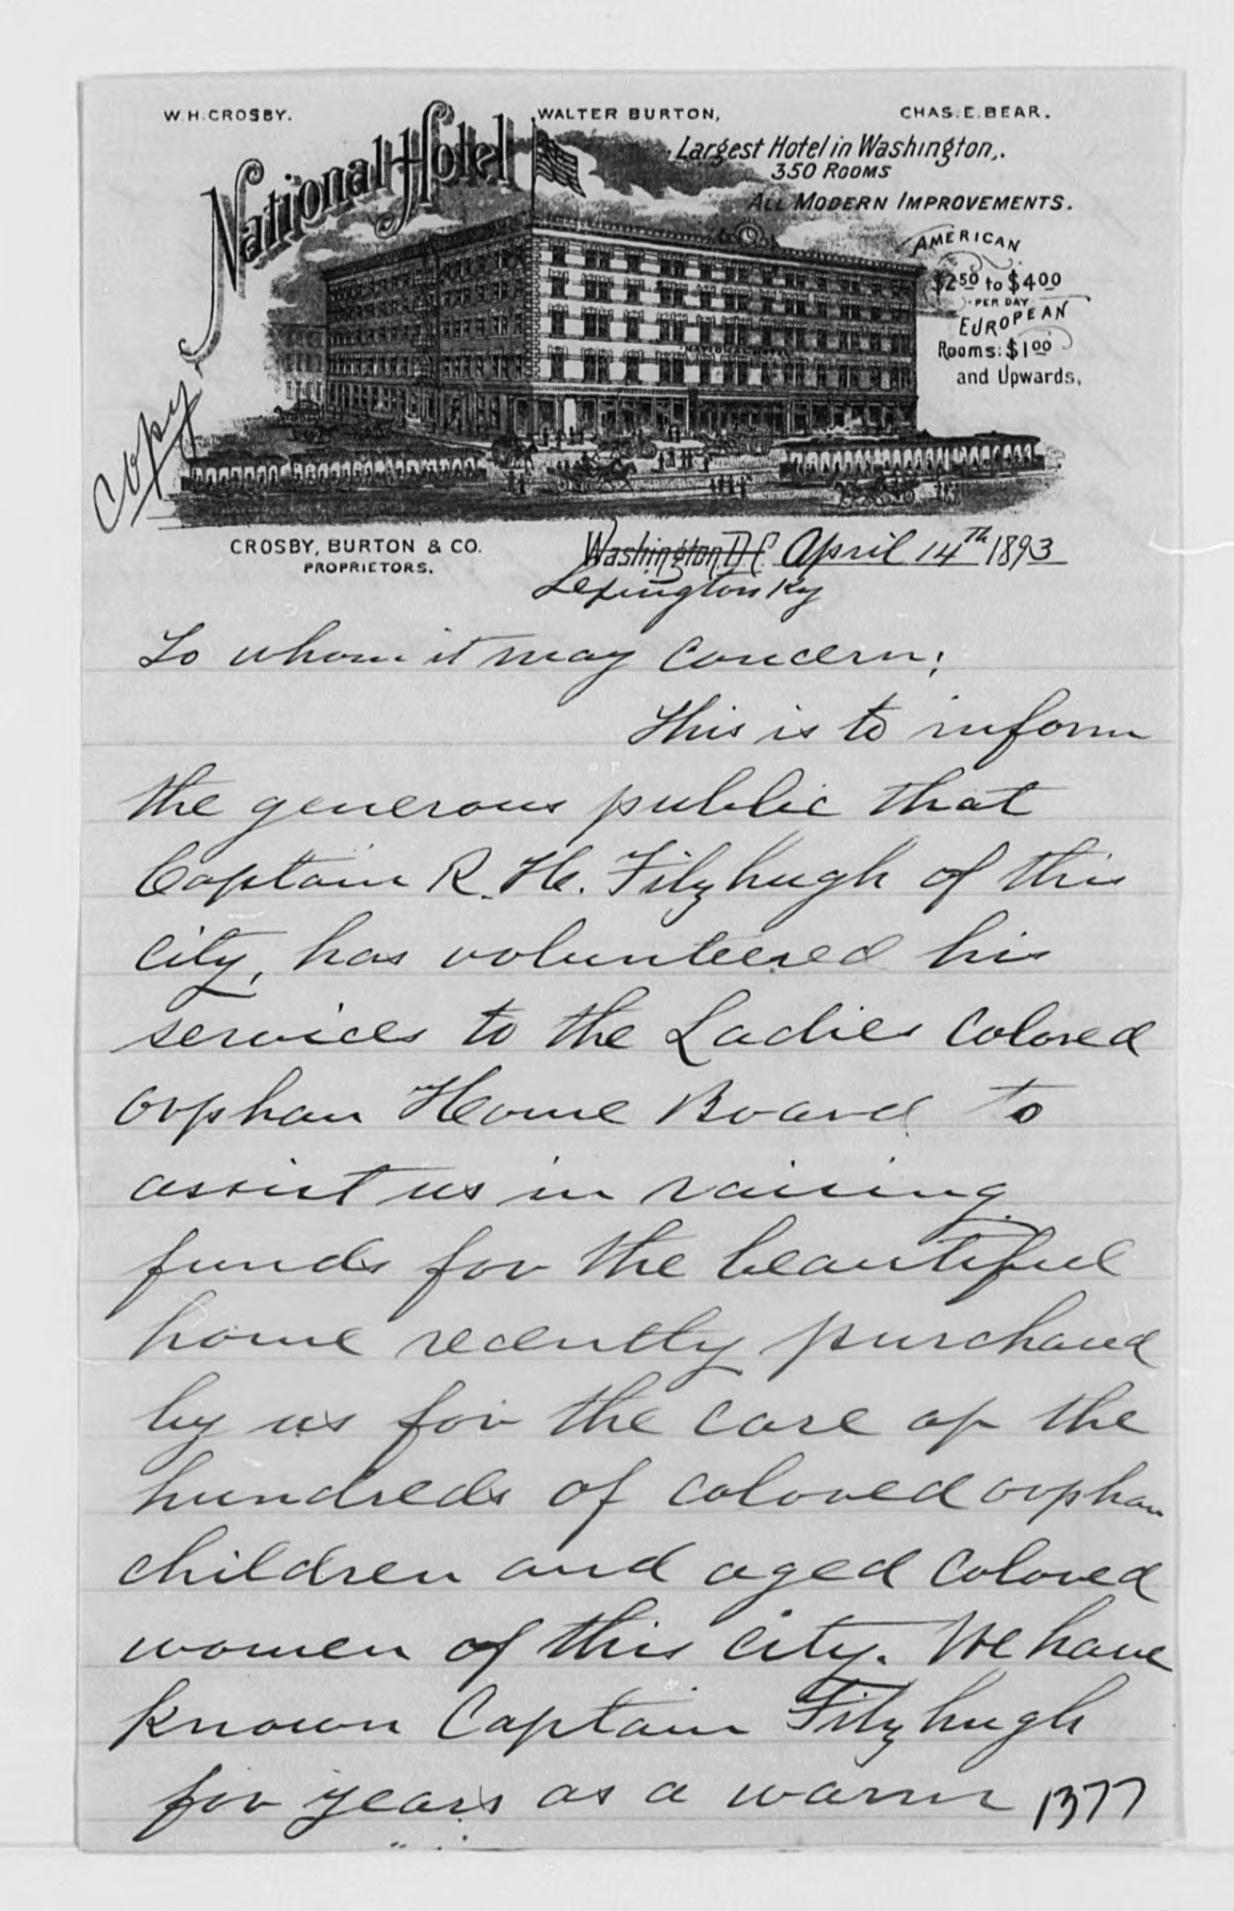 W. H. CROSBY.
WALTER BURTON,
CHAS. E. BEAR.
National Hotel
Largest Hotel in Washington,.
350 ROOMS
ALL MODERN IMPROVEMENTS.
AMERICAN
$2.50 to $4.00
PER DAY
EUROPEAN
Rooms: $1.00
and Upwards,
NATIONAL HOTEL
Copy
CROSBY, BURTON & CO.
PROPRIETORS.
Washington, D.C. April 14th 1893
Lexington Ky
To whom it may concern;
This is to inform
the generous public that
Captain R. H. Fitzhugh of this
city, has volunteered his
services to the Ladies colored
orphan Home Board to
assist us in raising
funds for the beautiful
home recently purchased
by us for the care of the
hundreds of colored orphan
children and aged colored
women of this city. We have
known Captain Fitzhugh
for years as a warm
1377